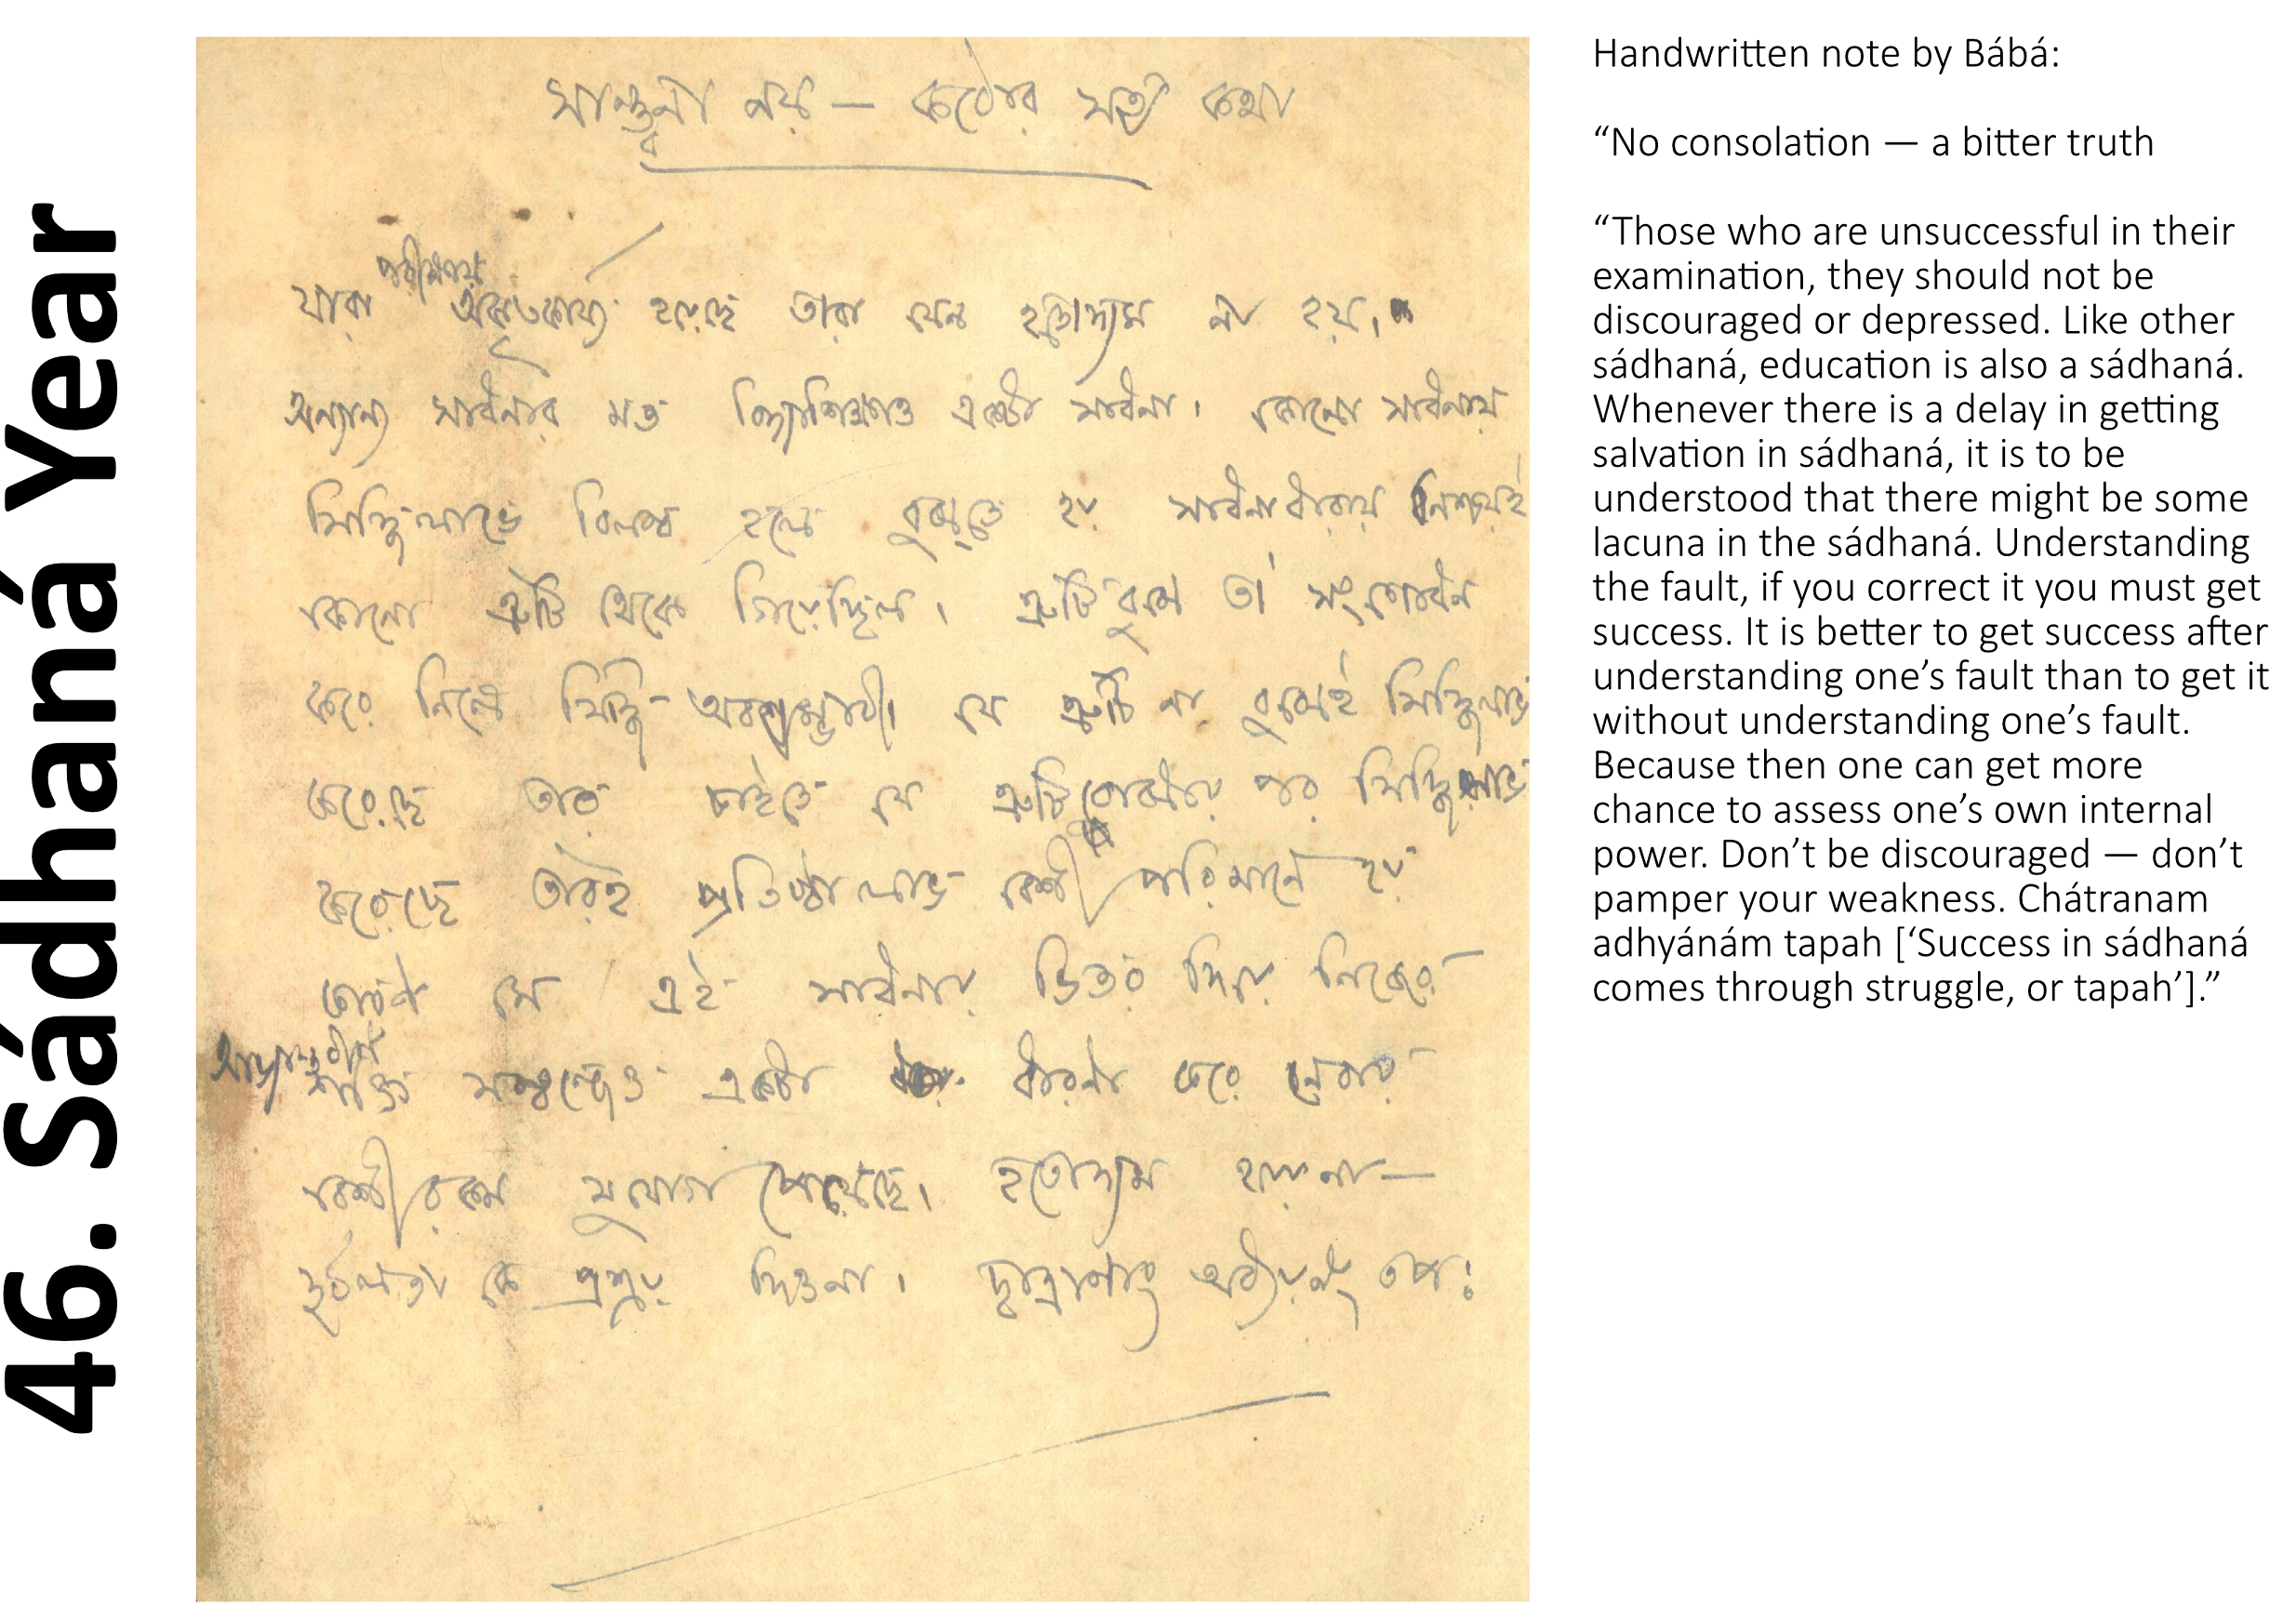 46. Sádhaná Year
সান্ত্বনা নয় — কঠোর সত্য কথা
পরীক্ষায়
যারা অকৃতকার্য্য হয়েছে তারা যেন হতোদ্যম না হয়।
অন্যান্য সাধনার মত বিদ্যাশিক্ষাও একটা সাধনা। কোনো সাধনায়
সিদ্ধিলাভে বিলম্ব হলে বুঝতে হয় সাধনাধারায় নিশ্চয়ই
কোনো ত্রুটি থেকে গিয়েছিল। ত্রুটি বুঝে তা' সংশোধন
করে নিলে সিদ্ধি অবশ্যম্ভাবী। যে ত্রুটি না বুঝেই সিদ্ধিলাভ
করেছে তার চাইতে যে ত্রুটি বোঝার পর সিদ্ধিলাভ
করেছে তারই প্রতিষ্ঠালাভ বেশী পরিমানে হয়
কারণ সে এই সাধনার ভিতর দিয়ে নিজের
আভ্যন্তরীণ
শক্তি সম্বন্ধেও একটা ধারনা করে নেবার
বেশী রকম সুযোগ পেয়েছে। হতোদ্যম হয়ো না—
দুর্ব্বলতা কে প্রশ্রয় দিওনা। ছাত্রাণাং অধ্যয়নং তপঃ
Handwritten note by Bábá:
“No consolation — a bitter truth
“Those who are unsuccessful in their
examination, they should not be
discouraged or depressed. Like other
sádhaná, education is also a sádhaná.
Whenever there is a delay in getting
salvation in sádhaná, it is to be
understood that there might be some
lacuna in the sádhaná. Understanding
the fault, if you correct it you must get
success. It is better to get success after
understanding one’s fault than to get it
without understanding one’s fault.
Because then one can get more
chance to assess one’s own internal
power. Don’t be discouraged — don’t
pamper your weakness. Chátranam
adhyánám tapah [‘Success in sádhaná
comes through struggle, or tapah’].”